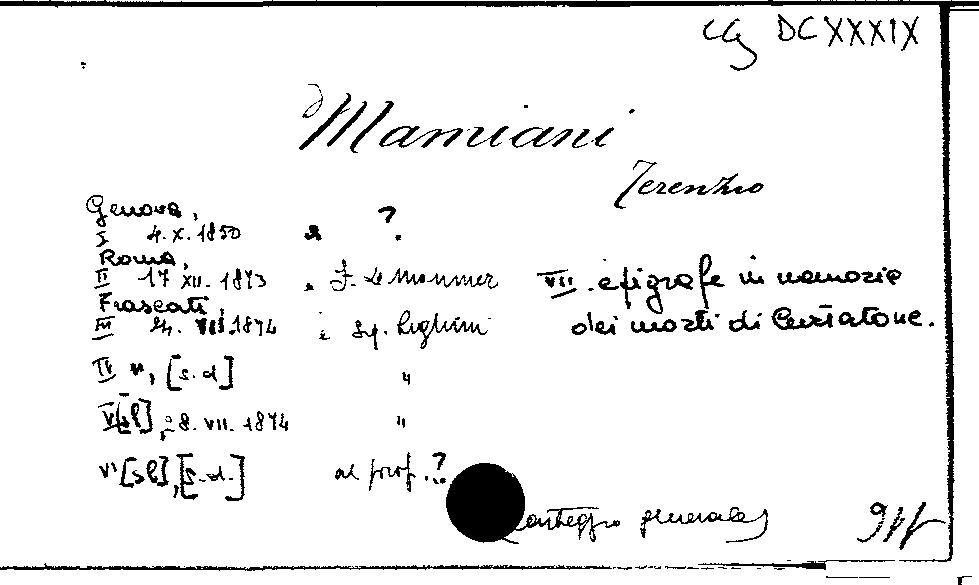 CG DCXXXIX
Mamiani
Terenzio
Genova,
I 4.X.1850 a ?
Roma,
II 17 XII. 1873 a F. Le Monnier
Frascati,
III 24. VIII.1874 a Sg. Righini
IV n, [s.d] "
V[sl], 28. VII. 1874 "
VI [sl],[s.d.] al prof. ?
VII. epigrafe in memoria
dei morti di Curtatone.
(carteggio generale)